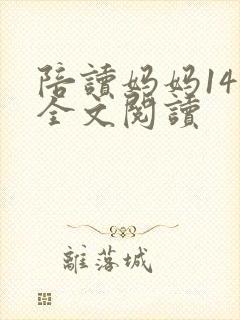 陪讀妈妈14
全文閱讀
離落城